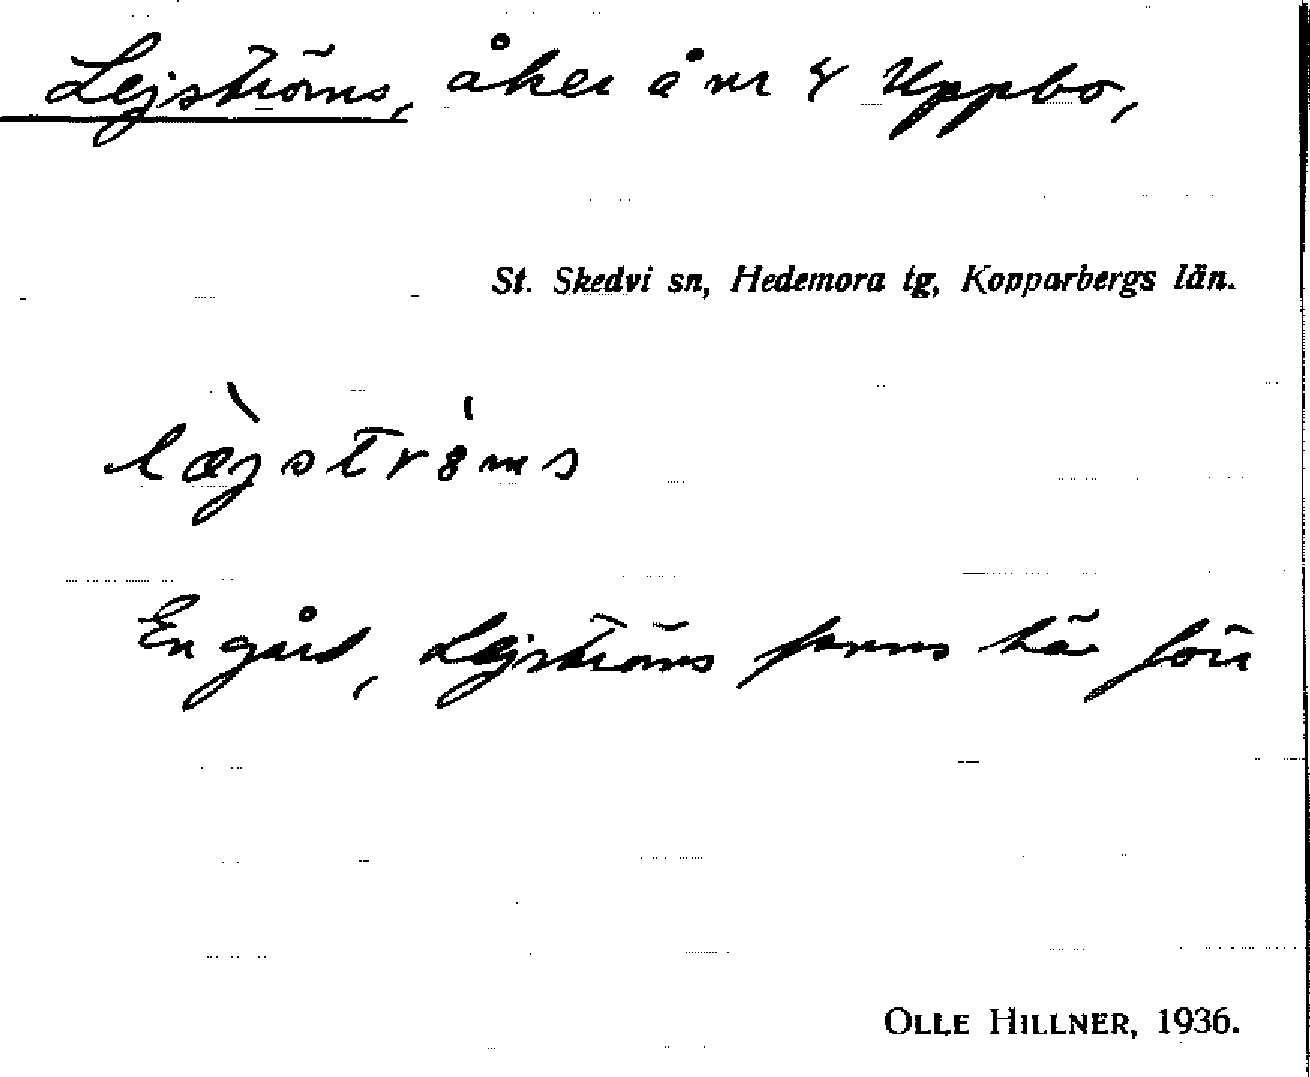 Lejströms, åker å nr 8 Uppbo,
St. Skedvi sn, Hedemora tg, Kopparbergs län.
læ̀jströ́ms
En gård, Lejströms fanns här förr
OLLE HILLNER, 1936.